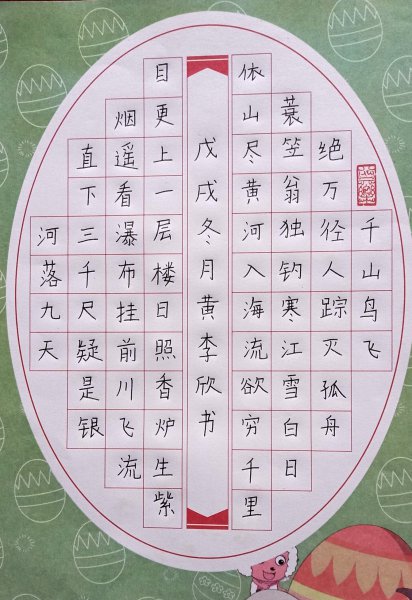 千山鸟飞
绝万径人踪灭孤舟
蓑笠翁独钓寒江雪白日
依山尽黄河入海流欲穷千里
目更上一层楼日照香炉生紫
烟遥看瀑布挂前川飞流
直下三千尺疑是银
河落九天
戊戌冬月黄李欣书